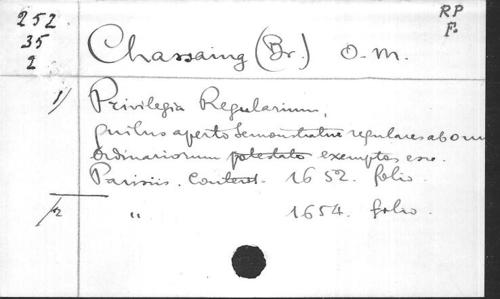 252 RP
35 F.
2 Chassaing (Br.) O.M.
1) Privilegia Regularium,
quibus aperte demonstratur regulares ab omn
Ordinariorum potestate exemptos esse.
Parisiis. 1652. folio.
/2 " 1654. folio.